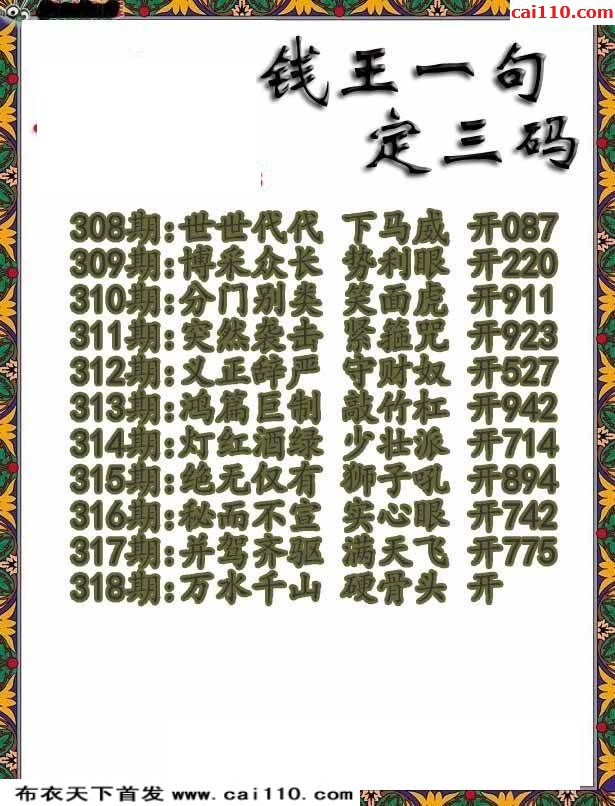 cai110.com
钱王一句
定三码
308期:世世代代 下马威 开087
309期:博采众长 势利眼 开220
310期:分门别类 笑面虎 开911
311期:突然袭击 紧箍咒 开923
312期:义正辞严 守财奴 开527
313期:鸿篇巨制 敲竹杠 开942
314期:灯红酒绿 少壮派 开714
315期:绝无仅有 狮子吼 开894
316期:秘而不宣 实心眼 开742
317期:并驾齐驱 满天飞 开775
318期:万水千山 硬骨头 开
布衣天下首发 www.cai110.com